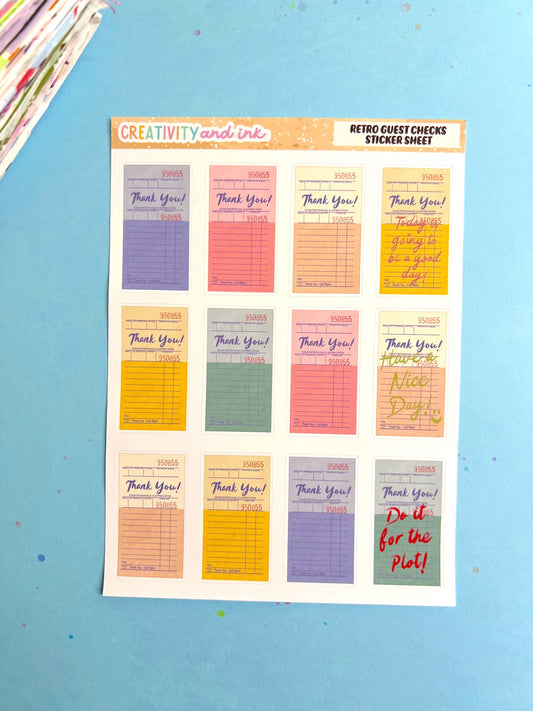 CREATIVITY and ink
RETRO GUEST CHECKS
STICKER SHEET
950855
Thank You!
950855
950855
Thank You!
950855
950855
Thank You!
950855
950855
Thank You!
950855
Today is
going to
be a good
day
950855
Thank You!
950855
950855
Thank You!
950855
950855
Thank You!
950855
950855
Thank You!
950855
Have a
Nice
Day!
950855
Thank You!
950855
950855
Thank You!
950855
950855
Thank You!
950855
950855
Thank You!
950855
Do it
for the
plot!